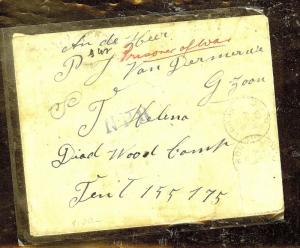 An de Heer
Prisoner of War
P J Van Dermerwe
G zoon
St Helena
Diad Wood Camp
Tent 155 175